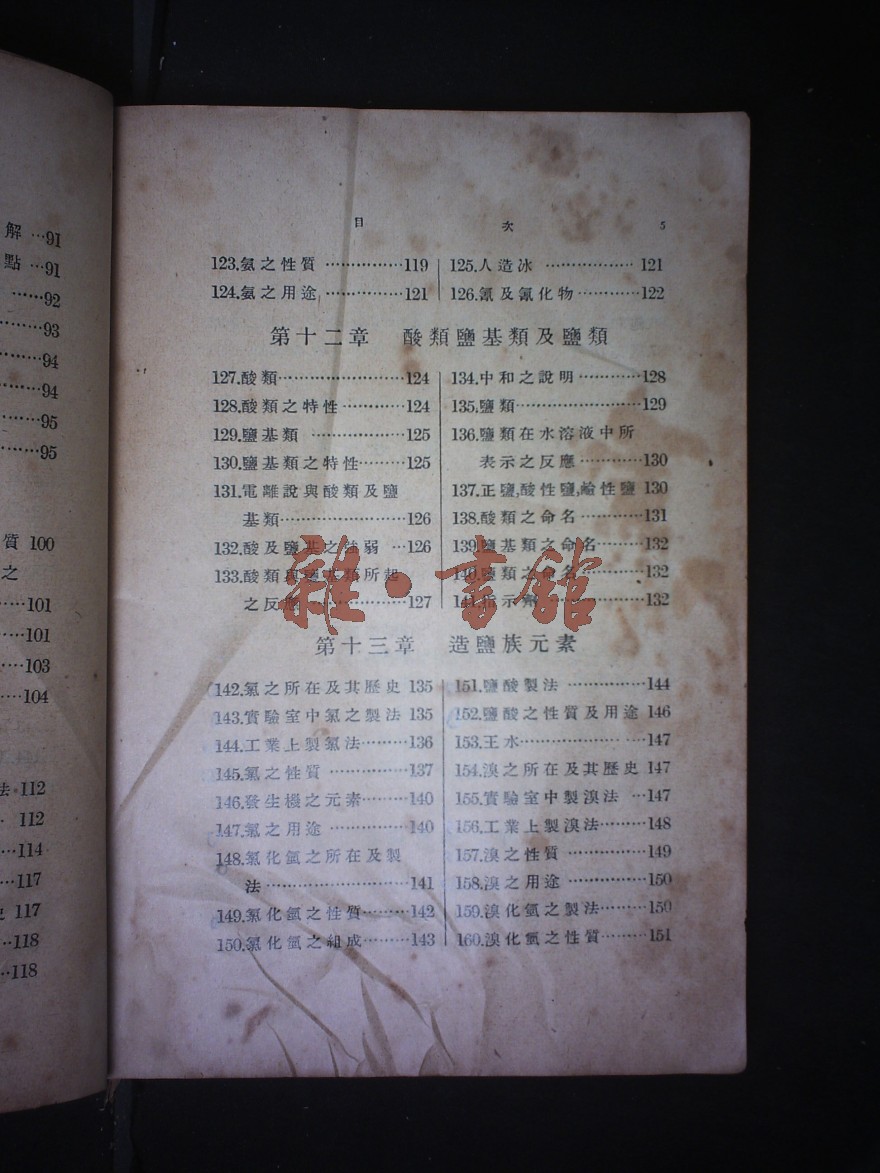 解 …91
點 …91
……92
……93
……94
……94
……95
……95
質 100
之
……101
……101
……103
……104
法 112
112
……114
……117
117
……118
……118
目 次 5
123.氨之性質 ……………119
124.氨之用途 ……………121
125.人造冰 ……………… 121
126.氰及氰化物…………122
第十二章 酸類鹽基類及鹽類
127.酸類……………………124
128.酸類之特性…………124
129.鹽基類 ………………125
130.鹽基類之特性………125
131.電離說與酸類及鹽
基類……………………126
132.酸及鹽基之強弱 …126
133.酸類與鹽基類所起
之反應 ………………127
134.中和之說明…………128
135.鹽類……………………129
136.鹽類在水溶液中所
表示之反應…………130
137.正鹽,酸性鹽,鹼性鹽 130
138.酸類之命名…………131
139.鹽基類之命名………132
140.鹽類之命名…………132
141.指示劑 ………………132
雜·書館
第十三章 造鹽族元素
142.氯之所在及其歷史 135
143.實驗室中氯之製法 135
144.工業上製氯法………136
145.氯之性質 ……………137
146.發生機之元素………140
147.氯之用途 ……………140
148.氯化氫之所在及製
法………………………141
149.氯化氫之性質………142
150.氯化氫之組成………143
151.鹽酸製法 ……………144
152.鹽酸之性質及用途 146
153.王水…………………147
154.溴之所在及其歷史 147
155.實驗室中製溴法 …147
156.工業上製溴法………148
157.溴之性質 ……………149
158.溴之用途 ……………150
159.溴化氫之製法………150
160.溴化氫之性質………151